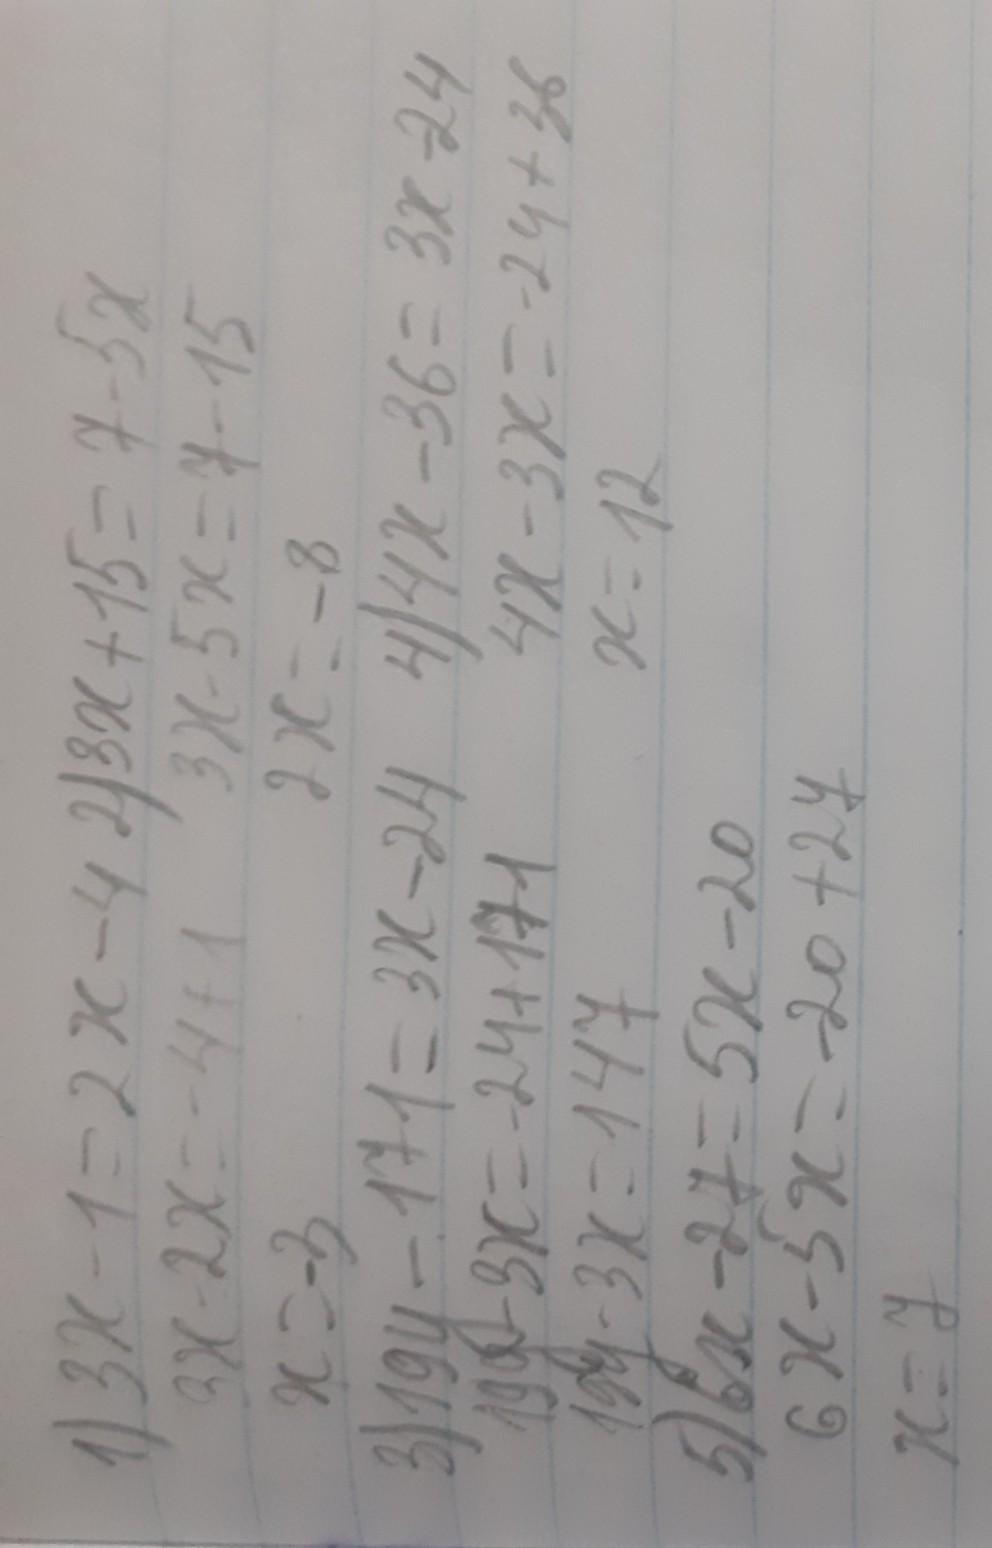 1) 3x - 1 = 2x - 4 2) 3x + 15 = 7 - 5x
3x - 2x = -4 + 1 3x - 5x = 7 - 15
x = -3 2x = -8
3) 19y - 171 = 3x - 24 4) 4x - 36 = 3x - 24
19y - 3x = -24 + 171 4x - 3x = -24 + 36
19y - 3x = 147 x = 12
5) 6x - 27 = 5x - 20
6x - 5x = -20 + 27
x = 7